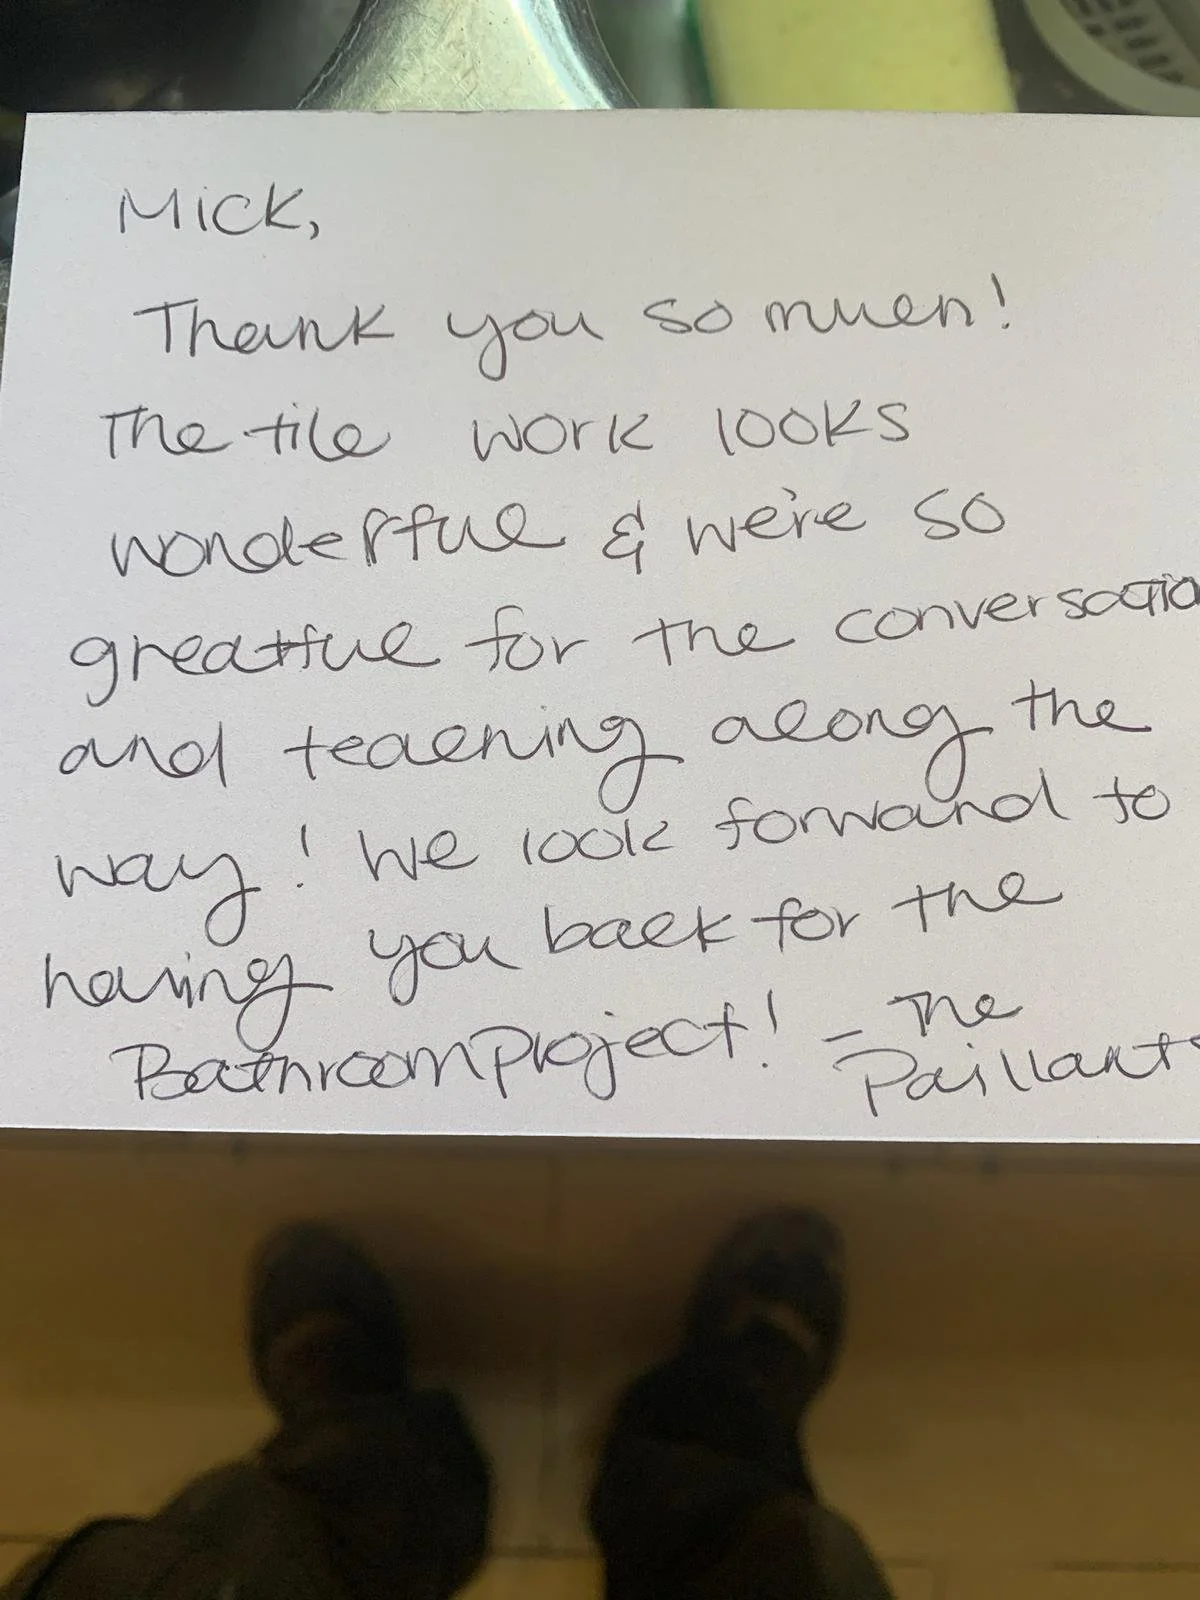 Mick,
Thank you so much!
The tile work looks
wonderful & we're so
greatful for the conversatio
and teaching along the
way! We look forward to
having you back for the
Bathroom Project! - The
Paillants